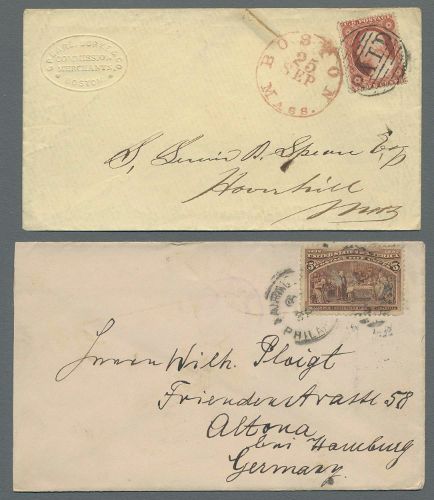 COMMISSION
MERCHANTS
BOSTON
BOSTON
25
SEP
MASS.
U.S. POSTAGE
PAID
S. Lewis B. Spear Esq
Haverhill
Mass
UNITED STATES OF AMERICA
5
5
PHILA
Herrn Wilh. Ploigt
Friedenstrasse 58
Altona
bei Hamburg
Germany.